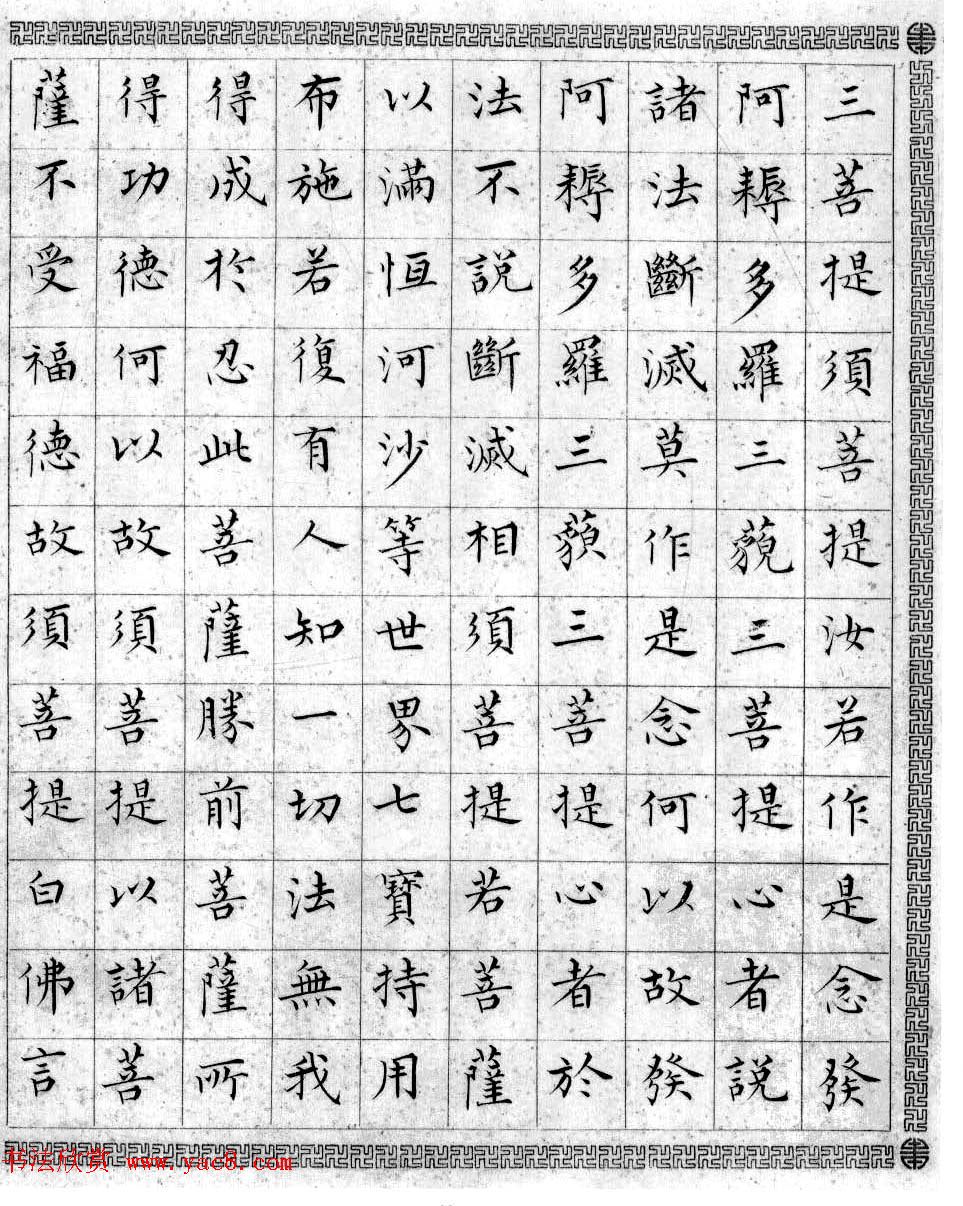 三菩提須菩提汝若作是念發
阿耨多羅三藐三菩提心者說
諸法斷滅莫作是念何以故發
阿耨多羅三藐三菩提心者於
法不說斷滅相須菩提若菩薩
以滿恒河沙等世界七寶持用
布施若復有人知一切法無我
得成於忍此菩薩勝前菩薩所
得功德何以故須菩提以諸菩
薩不受福德故須菩提白佛言
书法欣赏 www.yac8.com